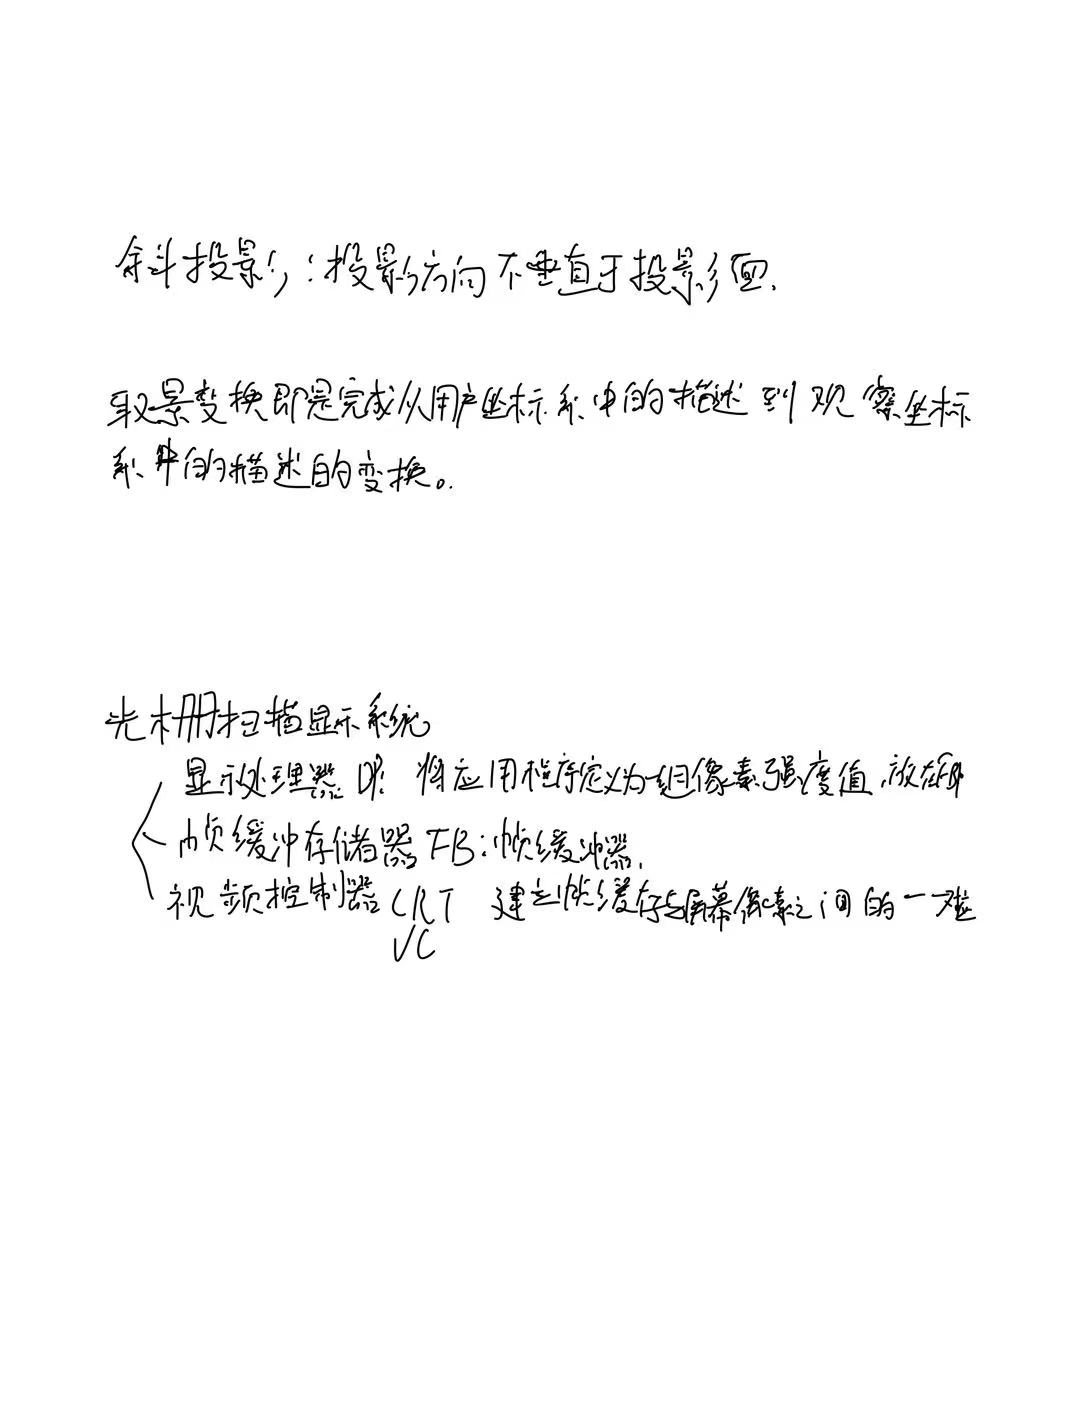 斜投影：投影方向不垂直于投影面.
取景变换即是完成从用户坐标系中的描述到观察坐标
系中的描述的变换。
光栅扫描显示系统
显示处理器 DP: 将应用程序定义为一组像素强度值.放在FB中
帧缓冲存储器 FB:帧缓冲器.
视频控制器 CRT 建立帧缓存与屏幕像素之间的一一对应
VC